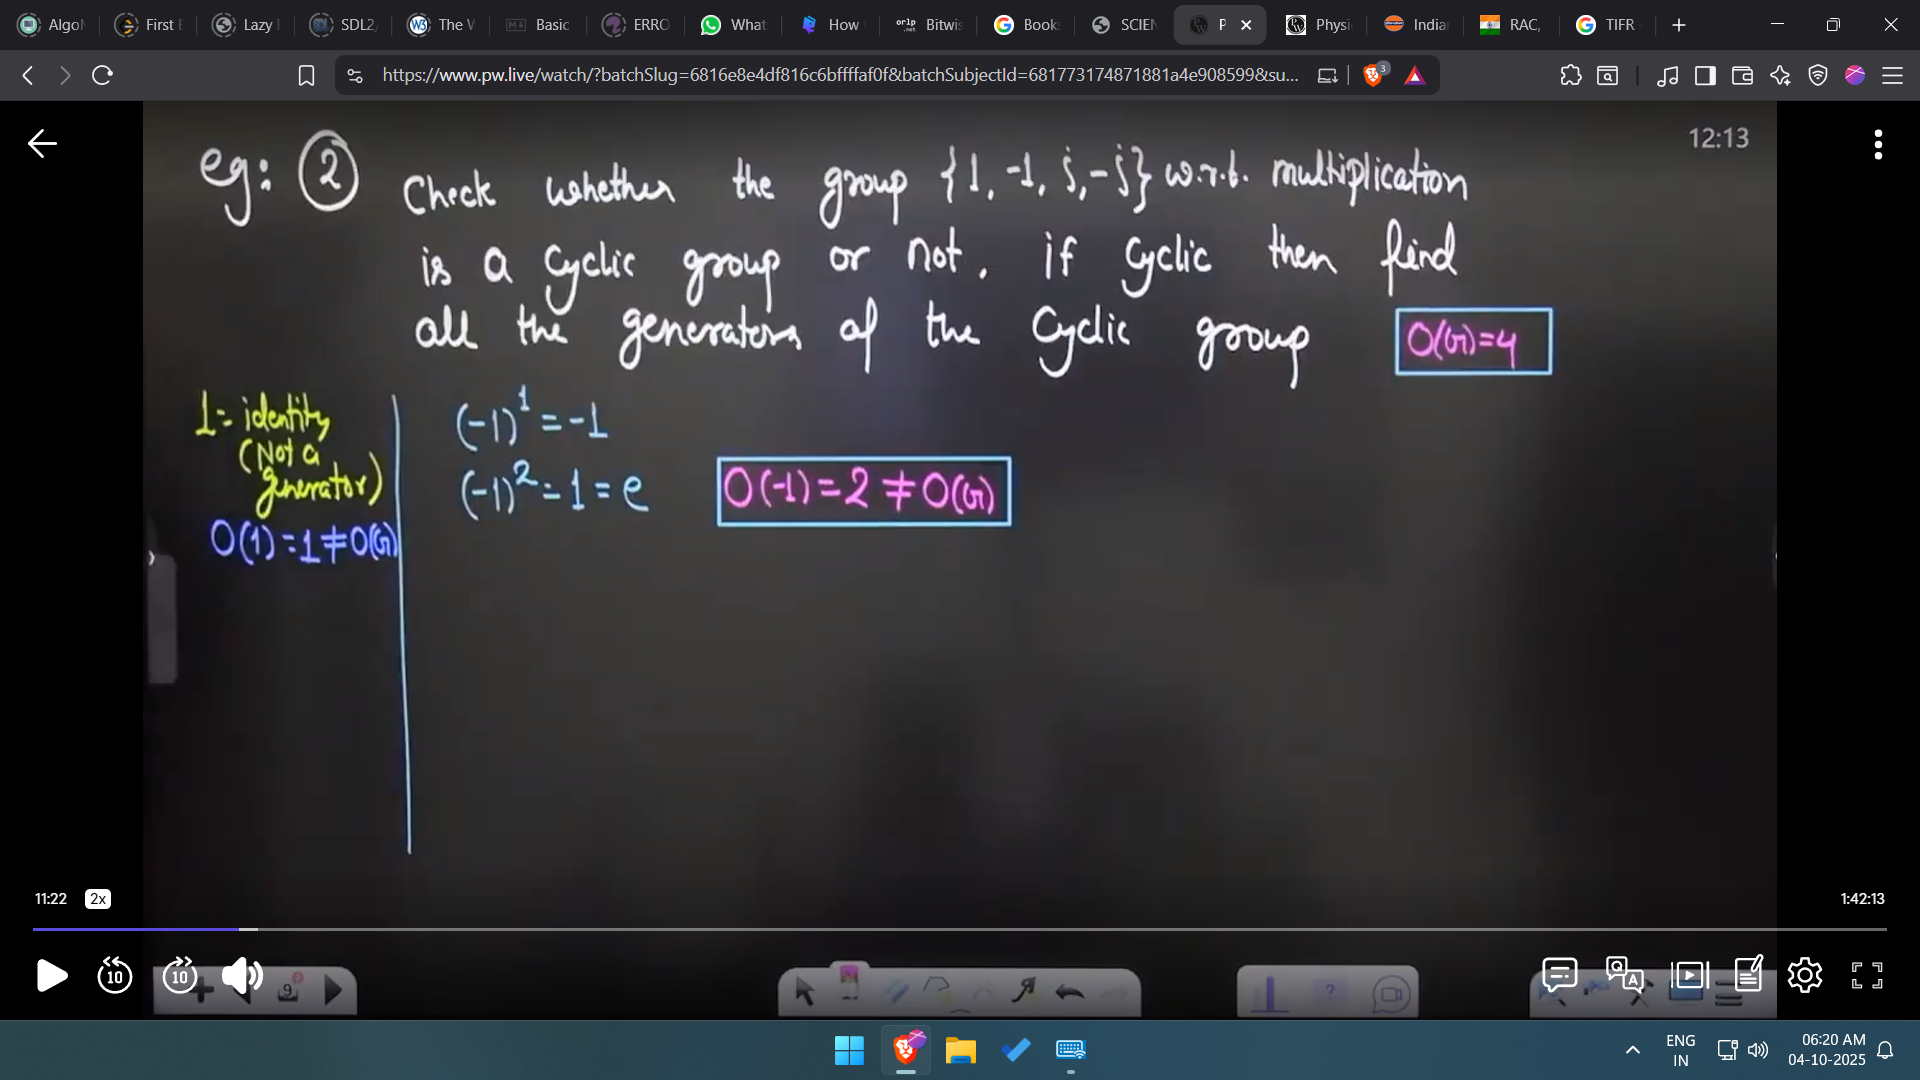 Algo
First E
Lazy
SDL2
The W
Basic
ERRO
What
How
Bitwis
Book
SCIEN
P
Physi
India
RAC,
TIFR
https://www.pw.live/watch/?batchSlug=6816e8e4df816c6bffffaf0f&batchSubjectId=681773174871881a4e908599&su...
3
12:13
eg: 2 Check whether the group {1, -1, j, -j} w.r.t. multiplication
is a cyclic group or not. if cyclic then find
all the generators of the cyclic group
O(G)=4
1= identity
(Not a
generator)
O(1)=1≠O(G)
(-1)^1 = -1
(-1)^2 = 1 = e
O(-1)=2≠O(G)
11:22 2x
1:42:13
10 10
9
ENG
IN
06:20 AM
04-10-2025